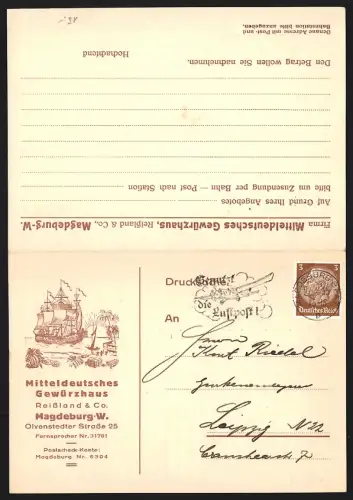 Firma Mitteldeutsches Gewürzhaus, Reißland & Co., Magdeburg-W.
Auf Grund Ihres Angebotes
bitte um Zusendung per Bahn — Post nach Station
Den Betrag wollen Sie nachnehmen.
Hochachtend
Genaue Adresse mit Post- und
Bahnstation bitte anzugeben.
Drucksache
die
Luftpost!
3 3
Deutsches Reich
An
Kurt Riedel
Leipzig N 22
Mitteldeutsches
Gewürzhaus
Reißland & Co.
Magdeburg-W.
Olvenstedter Straße 25
Fernsprecher Nr. 21781
Postscheck-Konto:
Magdeburg Nr. 6304